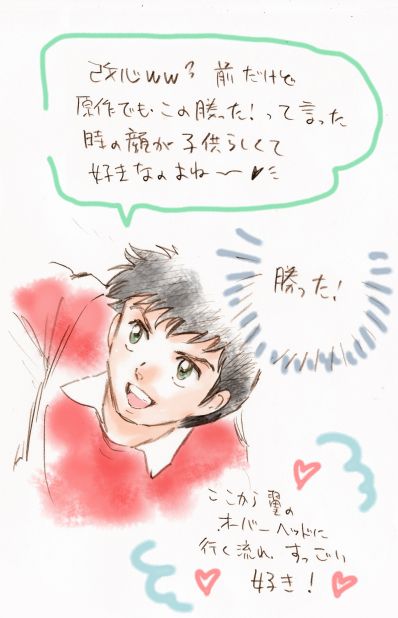 改心ww? 前だけど
原作でも、この勝った!って言った
時の顔が子供らしくて
好きなのよね〜♥
勝った!
ここから翼の
オーバーヘッドに
行く流れ、すっごい
好き!